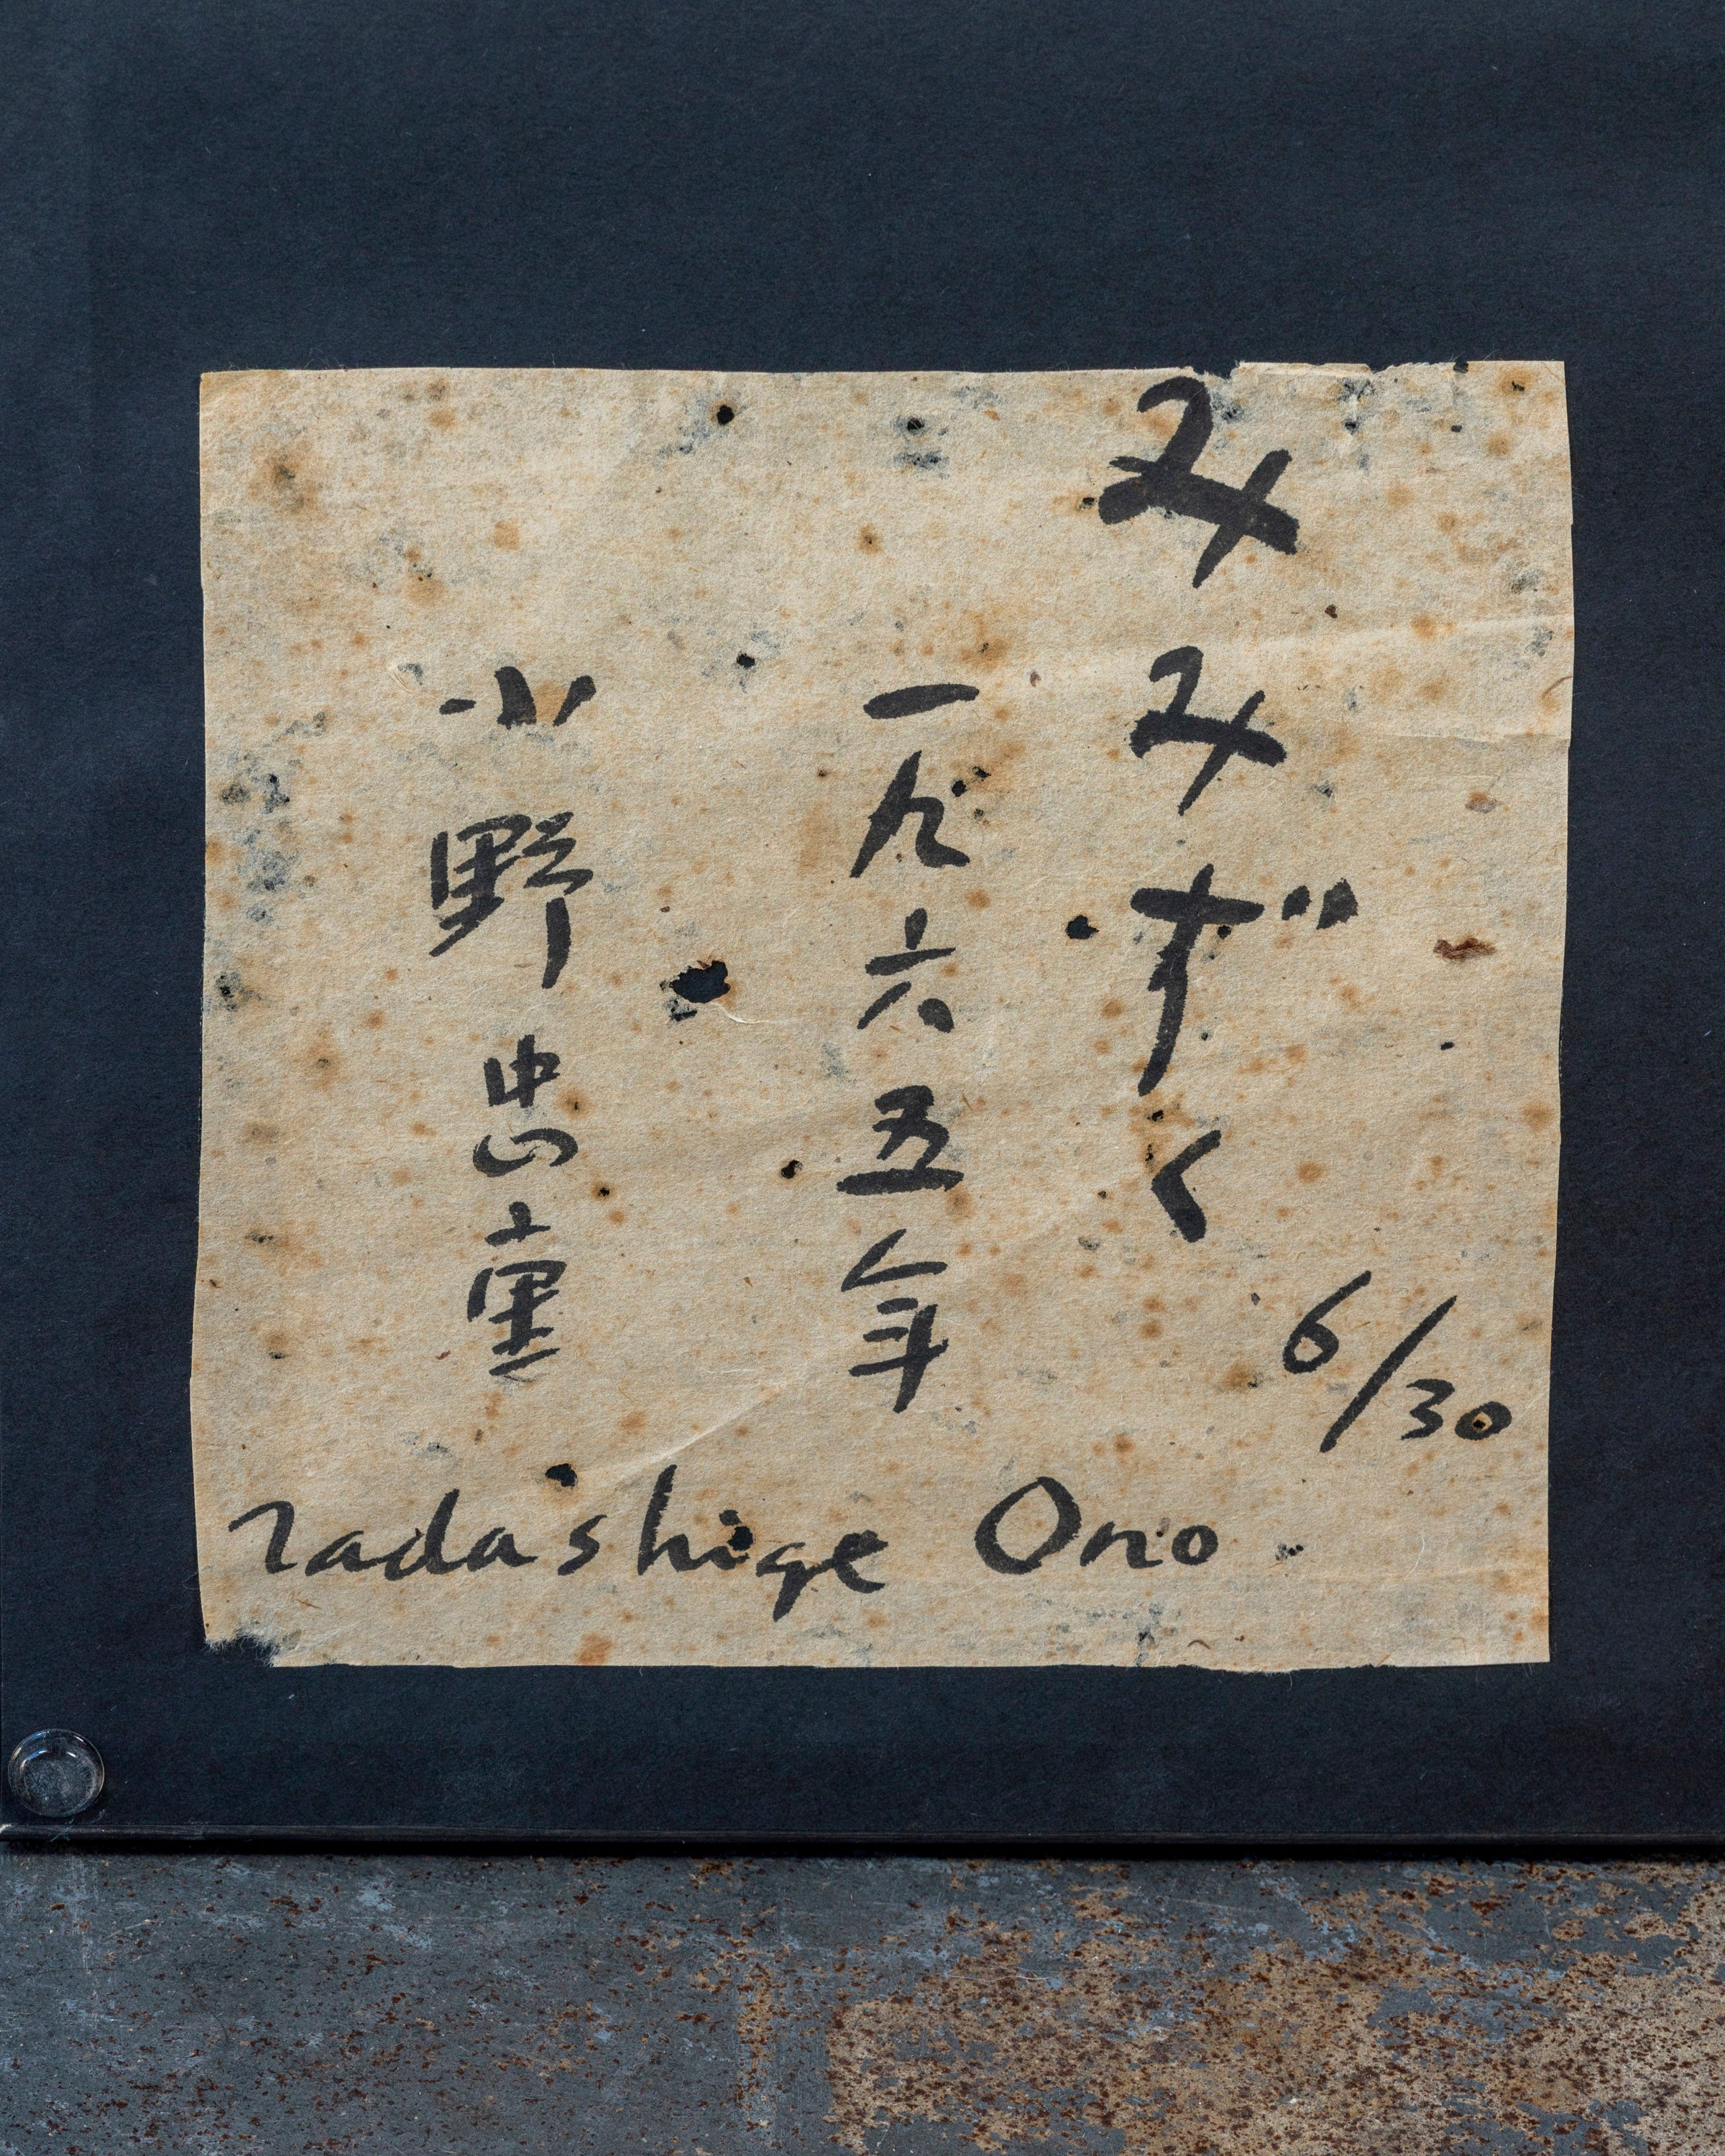 みみずく
6/30
一九六五年
小野忠重
Tadashige Ono